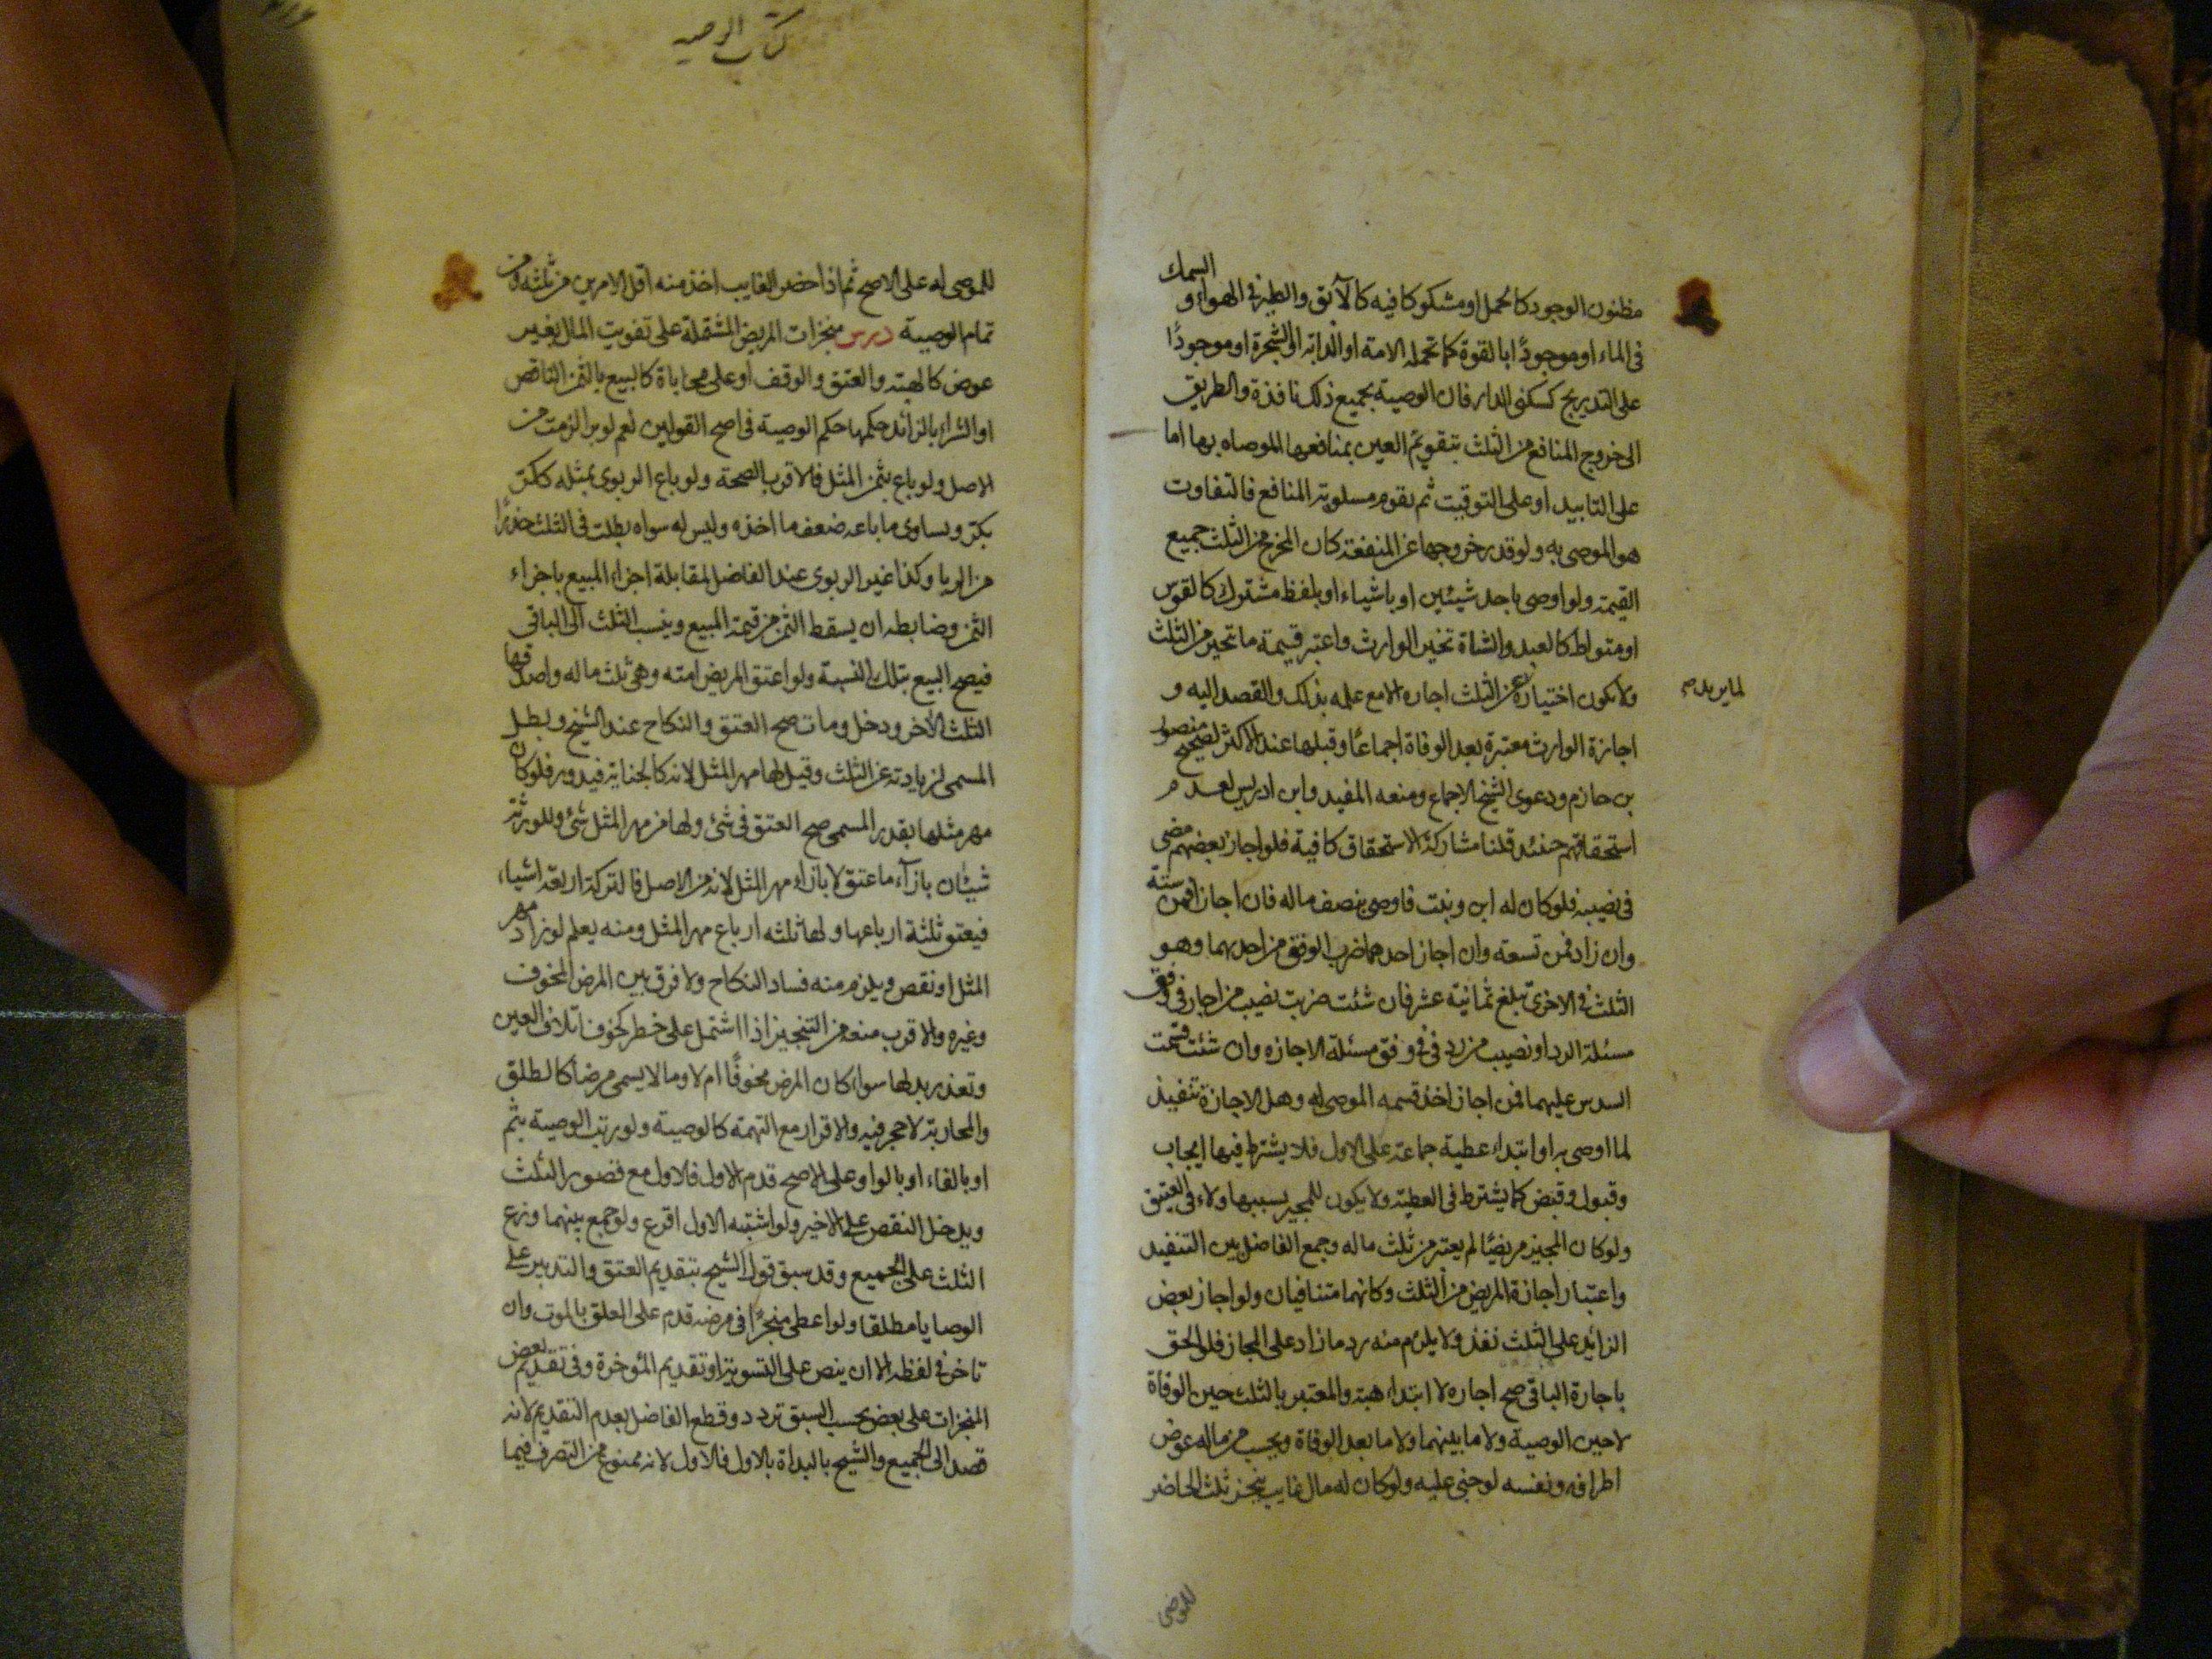 مظنون الوجود كالحمل او مشكوكا فيه كالآبق والطير فى الهواء و السمك
فى الماء او موجودًا بالقوة كما تحمله الامة او الدابة او الشجرة او موجودًا
على التدريج كسكنى الدار فان الوصية بجميع ذلك نافذة والطريق
الى خروج المنافع من الثلث بتقويم العين بمنافعها الموصاه بها اما
على التابيد او على التوقيت ثم يقوم مسلوبة المنافع فالتفاوت
هو الموصى به ولو قدر خروجها عن المنفعة كان المخرج من الثلث جميع
القيمة ولو اوصى باحد شيئين او باشياء او بلفظ مشترك كالقوس
او متواط كالعبد والشاة تخير الوارث واعتبر قيمة ما تخير من الثلث
ولا يكون اختياره عن الثلث اجازه الا مع علمه بذلك والقصد اليه و
لما يزيد صح
اجازة الوارث معتبرة بعد الوفاة اجماعًا وقبلها عند الاكثر لصحيح منصور
بن حازم ودعوى الشيخ الاجماع ومنعه المفيد وابن ادريس لعدم
استحقاقهم حنئد قلنا مشاركة الاستحقاق كافية فلو اجاز بعضهم مضى
فى نصيبه فلو كان له ابن وبنت فاوصى بنصف ماله فان اجازا فمن ستة
وان زاد فمن تسعة وان اجاز احدهما ضرب الوفق من احديهما وهو
الثلث فى الاخرى تبلغ ثمانية عشر فان شئت ضربت نصيب من اجاز فى وفق
مسئلة الرد او نصيب من رد فى وفق مسئلة الاجازه وان شئت قسمت
السدس عليهما فمن اجاز اخذ قسمه الموصى له وهل الاجازة تنفيذ
لما اوصى به او ابتداء عطية جماعة على الاول فلا يشترط فيها ايجاب
وقبول وقبض كما يشترط فى العطية ولا يكون للمجيز بسببها ولاء فى العتق
ولو كان المجيز مريضًا لم يعتبر من ثلث ماله وجمع الفاضل بين التنفيد
واعتبار اجازة المريض من الثلث وكانهما متنافيان ولو اجاز بعض
الزائد على الثلث نفذ ولا يلزم منه رد ما زاد على المجاز فلو الحق
باجازة الباقى صح اجازه لا ابتداء هبة والمعتبر بالثلث حين الوفاة
لا حين الوصية ولا ما بينهما ولا ما بعد الوفاة ويحسب من ماله عوض
اطرافه ونفسه لو جنى عليه ولو كان له مال غايب ينجز ثلث الحاضر
للموصى
كتاب الوصيه
للموصى له على الاصح ثم اذا حضر الغايب اخذ منه اقل الامرين من ثلثه ومن
تمام الوصية درس منجزات المريض المشتملة على تفويت المال بغير
عوض كالهبة والعتق والوقف او على محاباة كالبيع بالثمن الناقص
او الشراء بالزائد حكمها حكم الوصية فى اصح القولين نعم لو برا لزمت من
الاصل ولو باع بثمن المثل فالاقرب الصحة ولو باع الربوى بمثله ككر
بكر ويساوى ما باعه ضعف ما اخذه وليس له سواه بطلت فى الثلث حذرًا
من الربا وكذا غير الربوى عند الفاضل لمقابلة اجزاء المبيع باجزاء
الثمن وضابطه ان يسقط الثمن من قيمة المبيع وينسب الثلث الى الباقى
فيصح البيع بتلك النسبة ولو اعتق المريض امته وهى ثلث ماله واصدقها
الثلث الآخر ودخل ومات صح العتق والنكاح عند الشيخ وبطل
المسمى لزيادته عن الثلث وقيل لها مهر المثل لانه كالجناية فيدور فلو كان
مهر مثلها بقدر المسمى صح العتق فى شئ ولها من مهر المثل شئ وللورثة
شيئان بازآء ما عتق لا بازاء مهر المثل لانه من الاصل فالتركة اربعة اشياء
فيعتق ثلثة ارباعها ولها ثلثه ارباع مهر المثل ومنه يعلم لو زاد مهر
المثل او نقص ويلزم منه فساد النكاح ولا فرق بين المرض المخوف
وغيره والاقرب منعه من التنجيز اذا اشتمل على خطر كخوف تلاف العين
وتعذر بدلها سواء كان المرض مخوفًا ام لا وما لا يسمى مرضا كالطلق
والمحاربة لا حجر فيه والاقرار مع التهمة كالوصية ولو رتب الوصية بثم
او بالفاء او بالواو على الاصح قدم الاول فالاول مع قصور الثلث
ويدخل النقص على الاخير ولو اشتبه الاول اقرع ولو جمع بينهما وزع
الثلث على الجميع وقد سبق قول الشيخ بتقديم العتق والتدبير على
الوصايا مطلقا ولو اعطى منجزًا فى مرضه قدم على المعلق بالموت وان
تاخر فى لفظه الا ان ينص على التسوية او تقديم المؤخرة وفى تقديم بعض
المنجزات على بعض بحسب السبق تردد وقطع الفاضل بعدم التقديم لانه
قصد الى الجميع والشيخ بالبداة بالاول فالاول لانه ممنوع من التصرف فيما